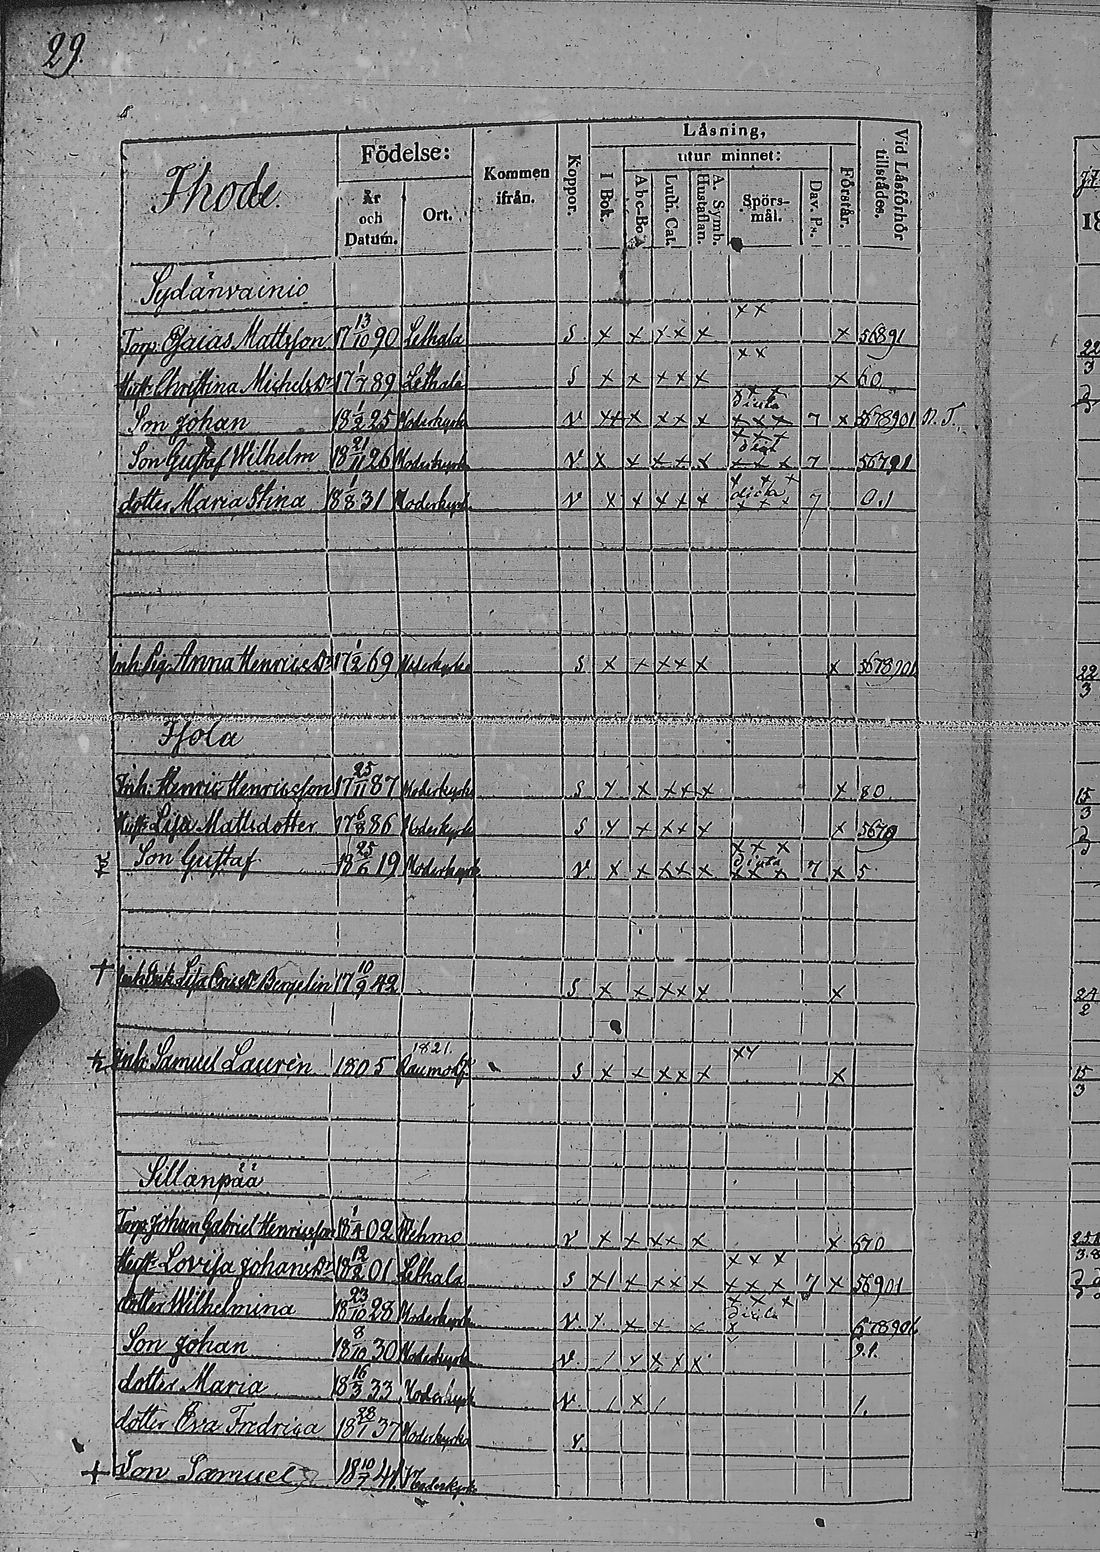 29.
Ihode.
Födelse:
År
och
Datum.
Ort.
Kommen
ifrån.
Koppor.
Läsning,
I Bok.
utur minnet:
Abc-Bo
Luth. Cat.
A. Symb.
Hustaflan.
Spörs-
mål.
Dav. Ps.
Förstår.
Vid Läsförhör
tillstädes.
Sydänvainio
x x
Torp. Esaias Mattsson 17 13/10 90 Lethala S x x x x x x 56891
x x
Hust. Christina Michelsdr 17 1/7 89 Lethala S x x x x x x 60
x x x
Son Johan 18 1/2 25 Moderkyrk V x x x x x x x x 7 x 5678901 N. T.
x x x
Son Gustaf Wilhelm 18 21/11 26 Moderkyrk V x x x x x x x x 7 x 56791
x x x
dotter Maria Stina 18 1/8 31 Moderkyrk V x x x x x x x x 7 0.1
Inh. Pig. Anna Henricsdr 17 1/2 69 Moderkyrka S x x x x x x 5678901
Isola
Inh: Henric Henricsson 17 25/11 87 Moderkyrka S x x x x x x 80
Hust. Lisa Mattsdotter 17 6/8 86 Moderkyrk S x x x x x x 5679
x x x
Son Gustaf 18 25/6 19 Moderkyrk V x x x x x x x x 7 x 5
+ Inh. Enk. Lisa Ericsdr Bergelin 17 10/9 42 S x x x x x x
1821.
Inh. Samuel Laurén 1805 Raumo S x x x x x x x x
Sillanpää
Torp. Johan Gabriel Henricsson 18 1/4 02 Wehmo V x x x x x x 570
x x x
Hust. Lovisa Johansdr 18 12/2 01 Lethala S x 1 x x x x x x x 7 x 56901
x x x
dotter Wilhelmina 18 23/10 28 Moderkyrk V x x x x x 578901
Son Johan 18 8/10 30 Moderkyrk V / x x x x 91.
dotter Maria 18 16/3 33 Moderkyrk V / x / 1.
dotter Eva Fredrica 18 28/1 37 Moderkyrka V.
+ Son Samuel 18 10/7 41 Moderkyrk
22
3
22
3
15
3
24
2
15
3